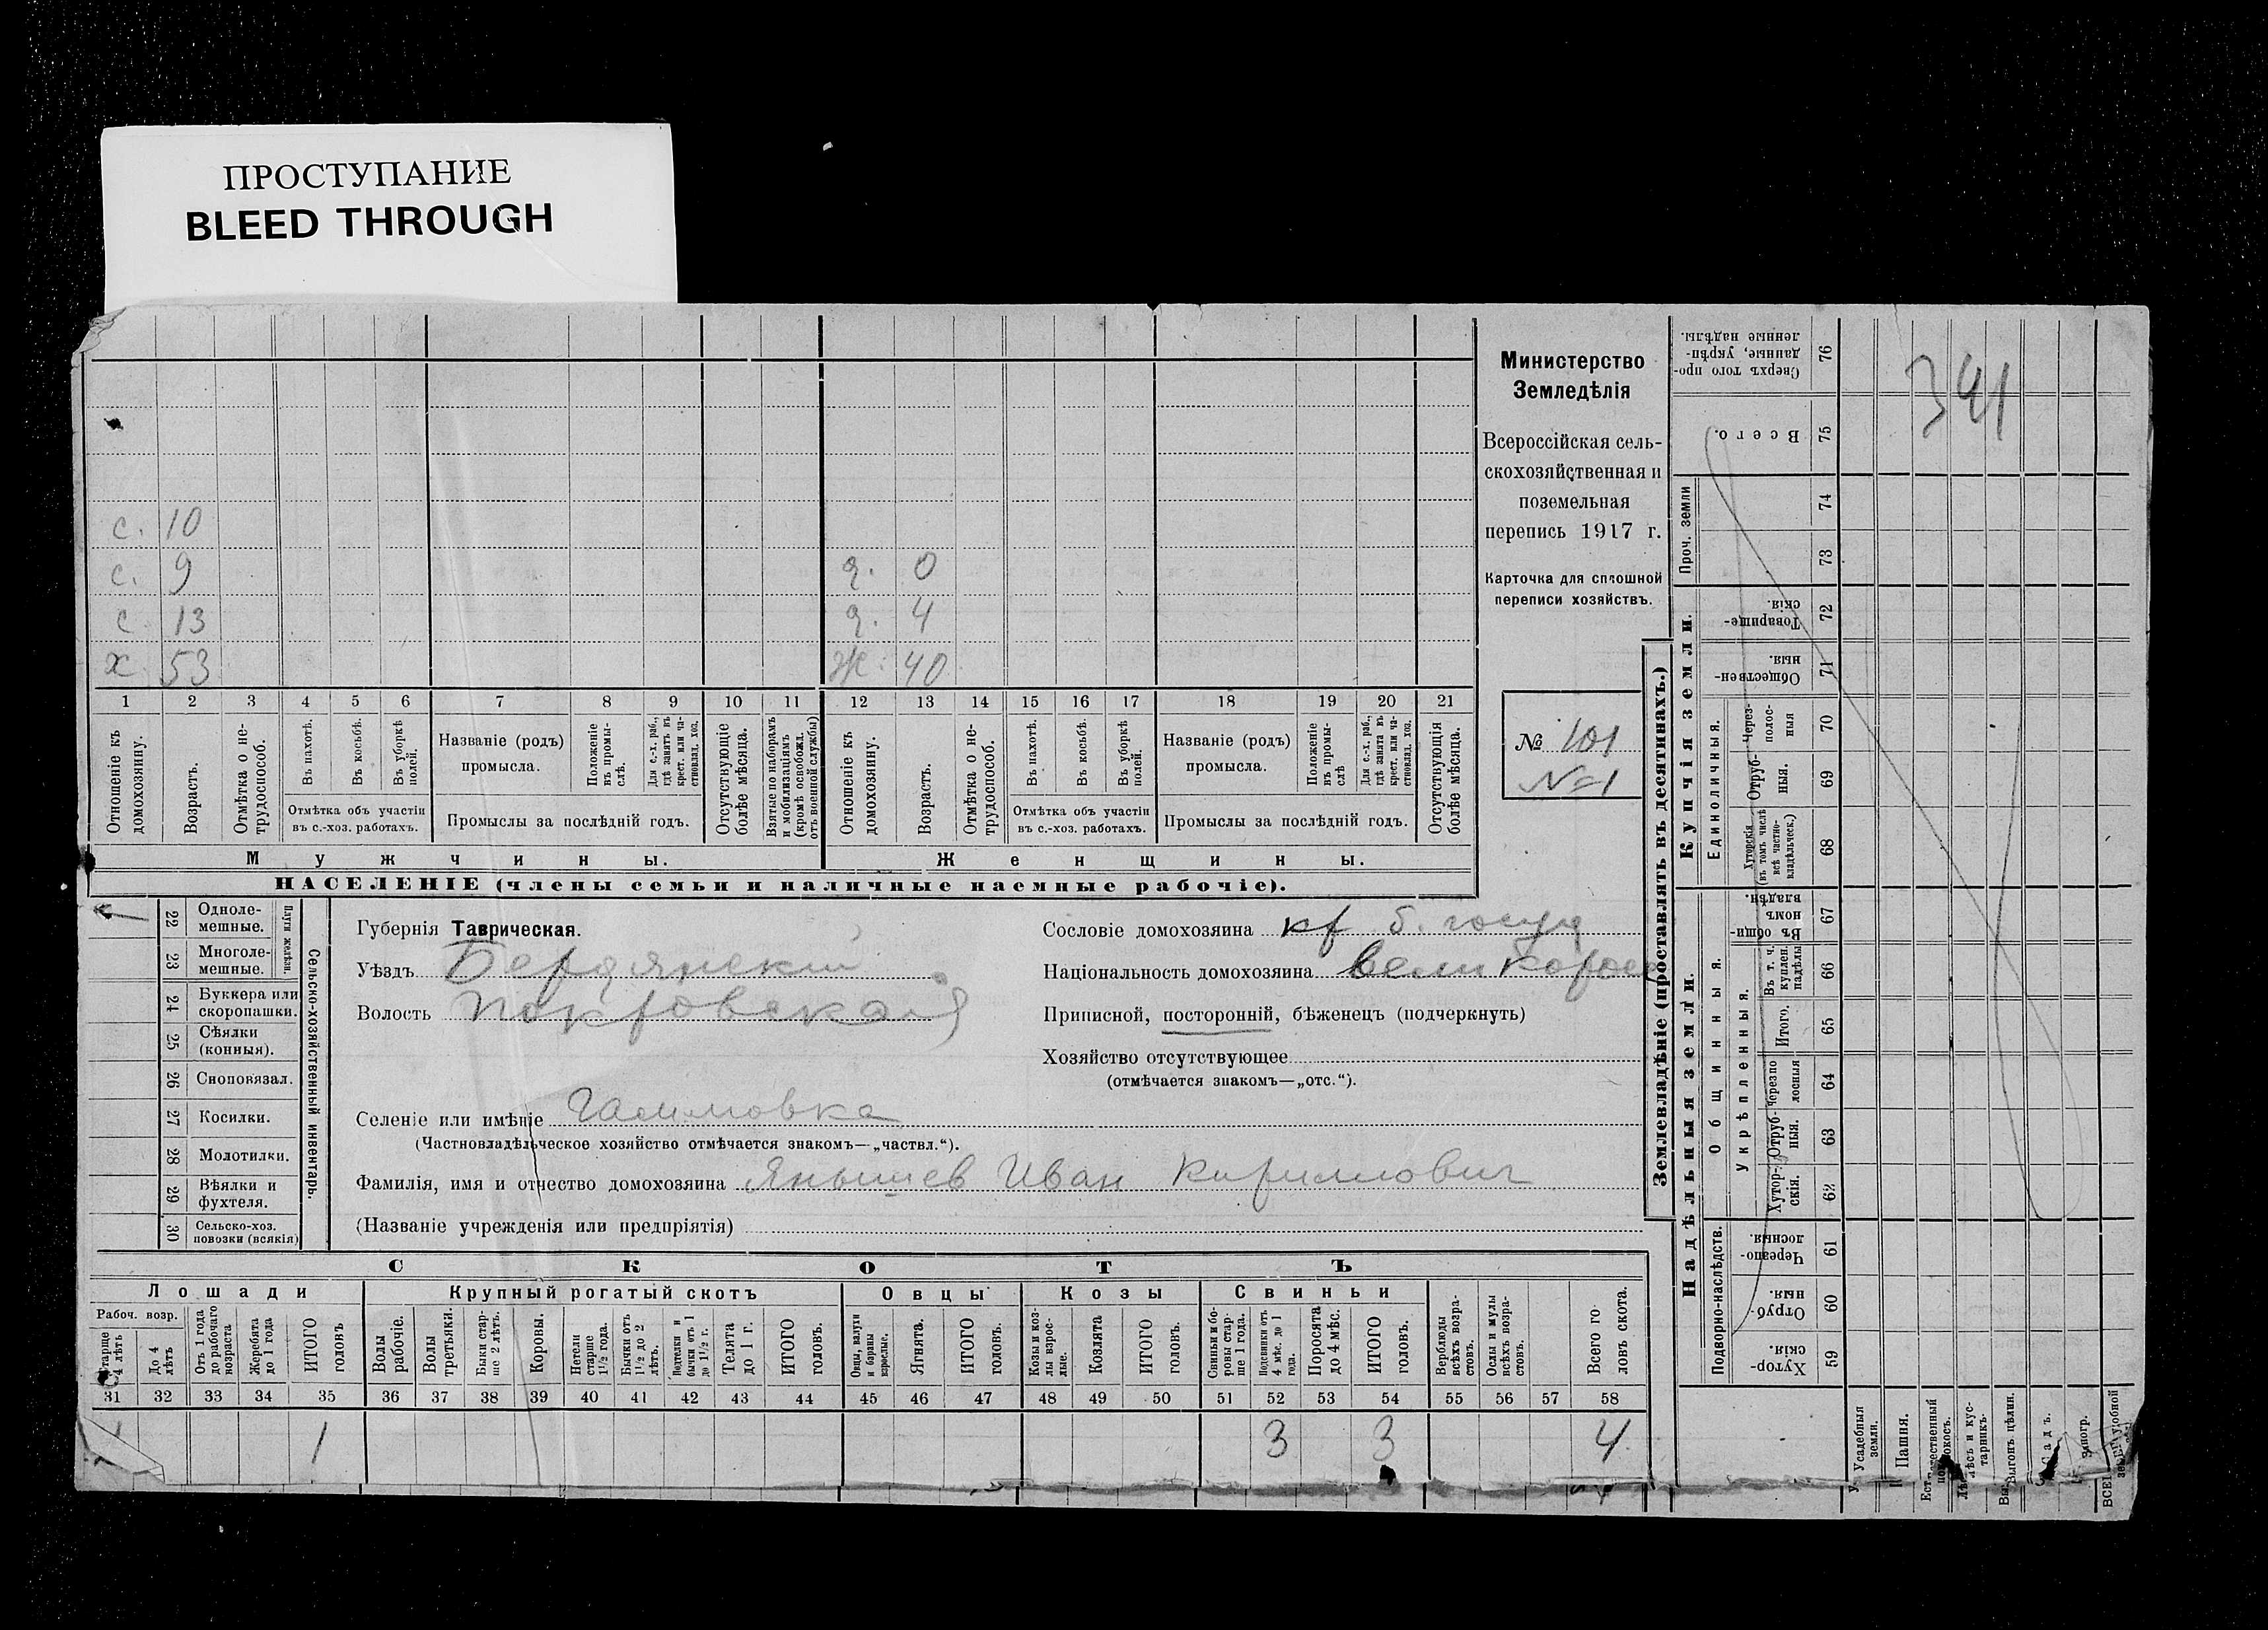 ПРОСТУПАНИЕ
BLEED THROUGH
с. 10
с. 9
с 13
х 53
д. 0
д. 4
ж. 40
1 2 3 4 5 6 7 8 9 10 11 12 13 14 15 16 17 18 19 20 21
Отношеніе къ домохозяину.
Возрастъ.
Отмѣтка о нетрудоспособ.
Въ пахотѣ.
Въ косьбѣ.
Въ уборкѣ полей.
Отмѣтка объ участіи
въ с.-хоз. работахъ.
Названіе (родъ)
промысла.
Положеніе въ промыслѣ.
Для с.-х. раб., гдѣ занятъ въ крест. или частновлад. хоз.
Промыслы за послѣдній годъ.
Отсутствующіе болѣе мѣсяца.
Взятые по наборамъ и мобилизаціямъ (кромѣ освобожд. отъ военной службы)
Отношеніе къ домохозяину.
Возрастъ.
Отмѣтка о нетрудоспособ.
Въ пахотѣ.
Въ косьбѣ.
Въ уборкѣ полей.
Отмѣтка объ участіи
въ с.-хоз. работахъ.
Названіе (родъ)
промысла.
Положеніе въ промыслѣ
Для с.-х. раб., гдѣ занята въ крест. или частновлад. хоз.
Промыслы за послѣдній годъ.
Отсутствующія болѣе мѣсяца.
Мужчины.
Женщины.
НАСЕЛЕНІЕ (члены семьи и наличные наемные рабочіе).
Министерство
Земледѣлія
Всероссійская сель-
скохозяйственная и
поземельная
перепись 1917 г.
Карточка для сплошной
переписи хозяйствъ.
№ 101
№1
22 Одноле-
мешные.
23 Многоле-
мешные.
Плуги желѣзн.
24 Буккера или
скоропашки.
25 Сѣялки
(конныя).
26 Сноповязал.
27 Косилки.
28 Молотилки.
29 Вѣялки и
фухтеля.
30 Сельско-хоз.
повозки (всякія)
Сельско-хозяйственный инвентарь.
Губернія Таврическая.
Уѣздъ Бердянский
Волость Покровская
Селеніе или имѣніе
(Частновладѣльческое хозяйство отмѣчается знакомъ—„частвл.“).
Фамилія, имя и отчество домохозяина Янышев Иван Кириллович
(Названіе учрежденія или предпріятія)
Сословіе домохозяина кр б. госуд
Національность домохозяина великоросс
Приписной, посторонній, бѣженецъ (подчеркнуть)
Хозяйство отсутствующее
(отмѣчается знакомъ—„отс.“).
СКОТЪ
Лошади
Крупный рогатый скотъ
Овцы
Козы
Свиньи
Рабоч. возр.
Старше 4 лѣтъ
До 4 лѣтъ
Отъ 1 года до рабочаго возраста
Жеребята до 1 года
ИТОГО головъ
Волы рабочіе.
Волы третьяки.
Быки старше 2 лѣтъ.
Коровы.
Нетели старше 1½ года.
Бычки отъ 1½ до 2 лѣтъ.
Подтелки и бычки отъ 1 до 1½ г.
Телята до 1 г.
ИТОГО головъ.
Овцы, валухи и бараны взрослые.
Ягнята.
ИТОГО головъ.
Козы и козлы взрослые.
Козлята
ИТОГО головъ.
Свиньи и боровы старше 1 года.
Подсвинки отъ 4 мѣс. до 1 года.
Поросята до 4 мѣс.
ИТОГО головъ.
Верблюды всѣхъ возрастовъ.
Ослы и мулы всѣхъ возрастовъ.
Всего головъ скота.
31 32 33 34 35 36 37 38 39 40 41 42 43 44 45 46 47 48 49 50 51 52 53 54 55 56 57 58
1 1 3 3 4
Землевладѣніе (проставлять въ десятинахъ.)
Сверхъ того проданные, укрѣпленные надѣлы. 76
341
Всего. 75
Проч. земли
74
73
Купчія земли.
Товарищескія. 72
Общественныя. 71
Единоличныя.
Черезполосныя 70
Отрубныя. 69
Хуторскія (въ томъ числѣ всѣ частновладѣльческ.) 68
Надѣльныя земли.
Общинныя.
Въ общинномъ владѣн. 67
Укрѣпленныя.
Въ т. ч. куплен. надѣлы 66
Итого. 65
Черезполосныя 64
Отрубныя. 63
Хуторскія. 62
Подворно-наслѣдств.
Черезполосныя. 61
Отрубныя. 60
Хуторскія. 59
Усадебныя земли.
Пашня.
Естественный покосъ.
Лѣсъ и кустарникъ.
Выгонъ цѣлин.
Садъ.